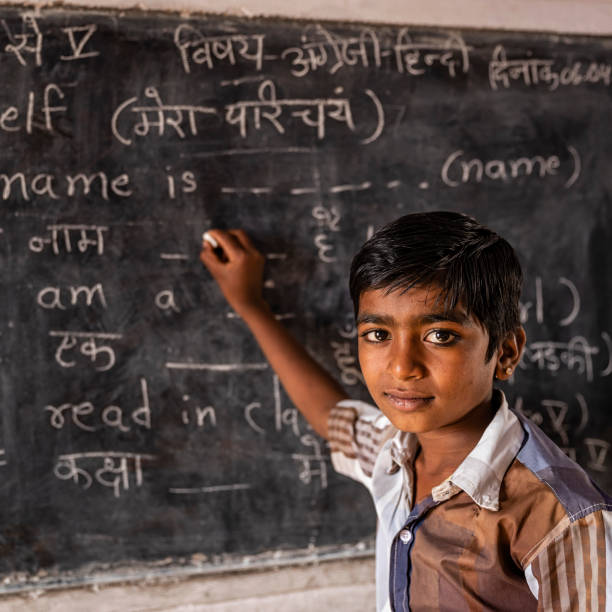 से V विषय - अंग्रेजी - हिन्दी दिनांक 06.04
elf (मेरा परिचय)
name is _ _ _ _ _ (name)
नाम _ _ है
am a
एक
read in cla
कक्षा V _ में